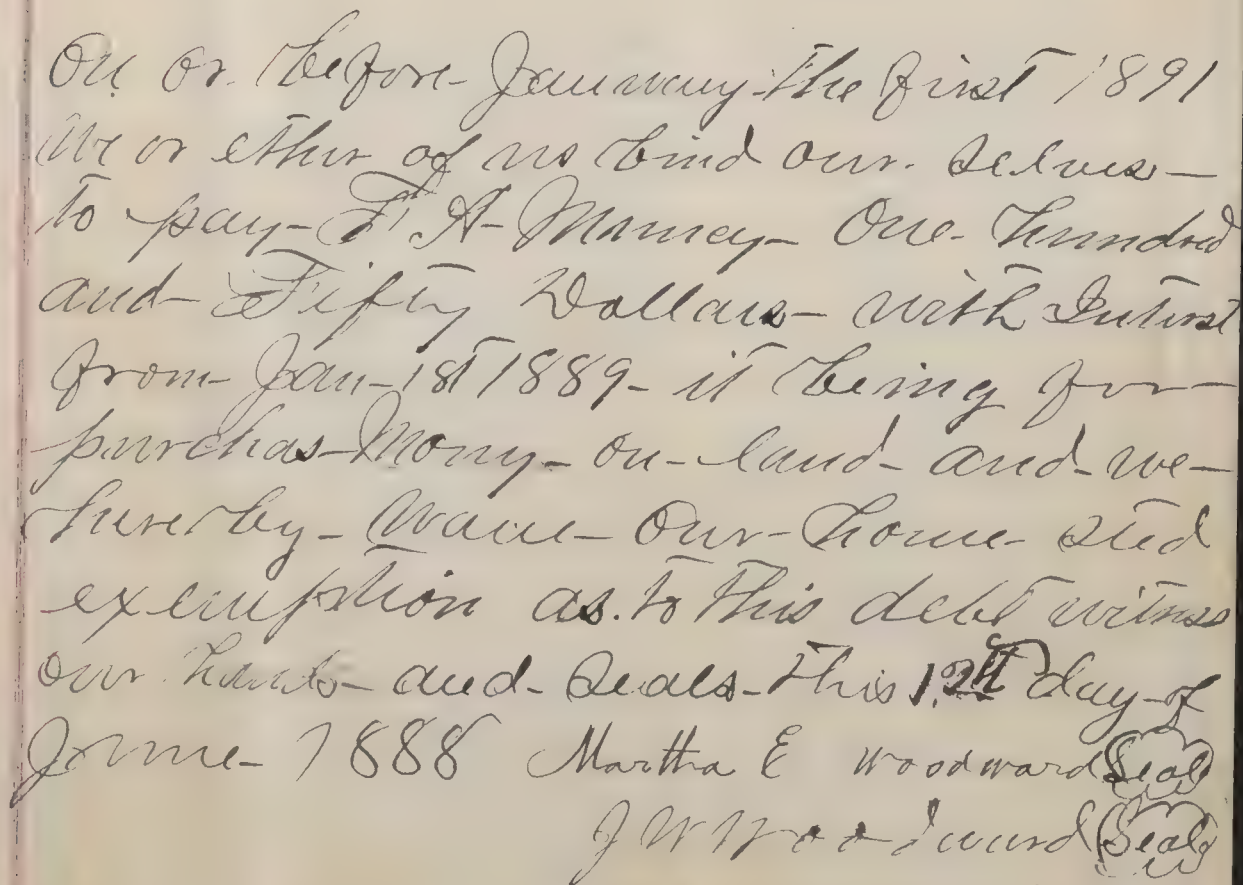 On or before January the first 1891
We or ether of us bind our selves
to pay F A Maney One hundred
and Fifty Dollars with Interest
from Jan 1st 1889 it being for
purchas Mony on land and we
hereby wave Our home sted
exemption as to this debt witness
our hands and Seals this 12th day of
June 1888 Martha E Woodward Seal
J W Woodward Seal